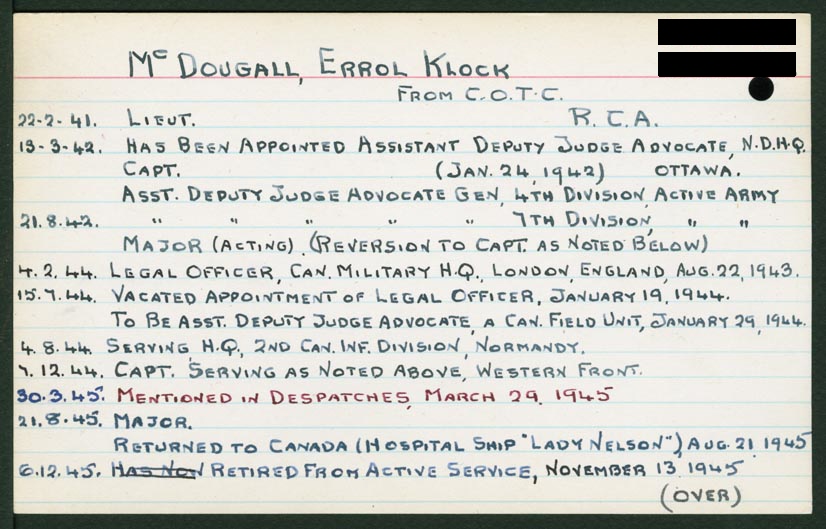 Mc Dougall, Errol Klock
From C.O.T.C.
22-2-41. Lieut. R.C.A.
13-3-42. Has been appointed Assistant Deputy Judge Advocate, N.D.H.Q.
Capt. (Jan. 24, 1942) Ottawa.
Asst. Deputy Judge Advocate Gen, 4th Division, Active Army
21.8.42. " " " " " 7th Division, " "
Major (Acting). (Reversion to Capt. as noted below)
4.2.44. Legal Officer, Can. Military H.Q., London, England, Aug. 22, 1943.
15.7.44. Vacated appointment of Legal Officer, January 19, 1944.
To be Asst. Deputy Judge Advocate, a Can. Field Unit, January 29, 1944.
4.8.44. Serving H.Q., 2nd Can. Inf. Division, Normandy.
7.12.44. Capt. Serving as noted above, Western Front.
30.3.45. Mentioned in Despatches, March 29, 1945
21.8.45. Major.
Returned to Canada (Hospital Ship "Lady Nelson"), Aug. 21 1945
6.12.45. Has Now Retired from Active Service, November 13 1945
(over)